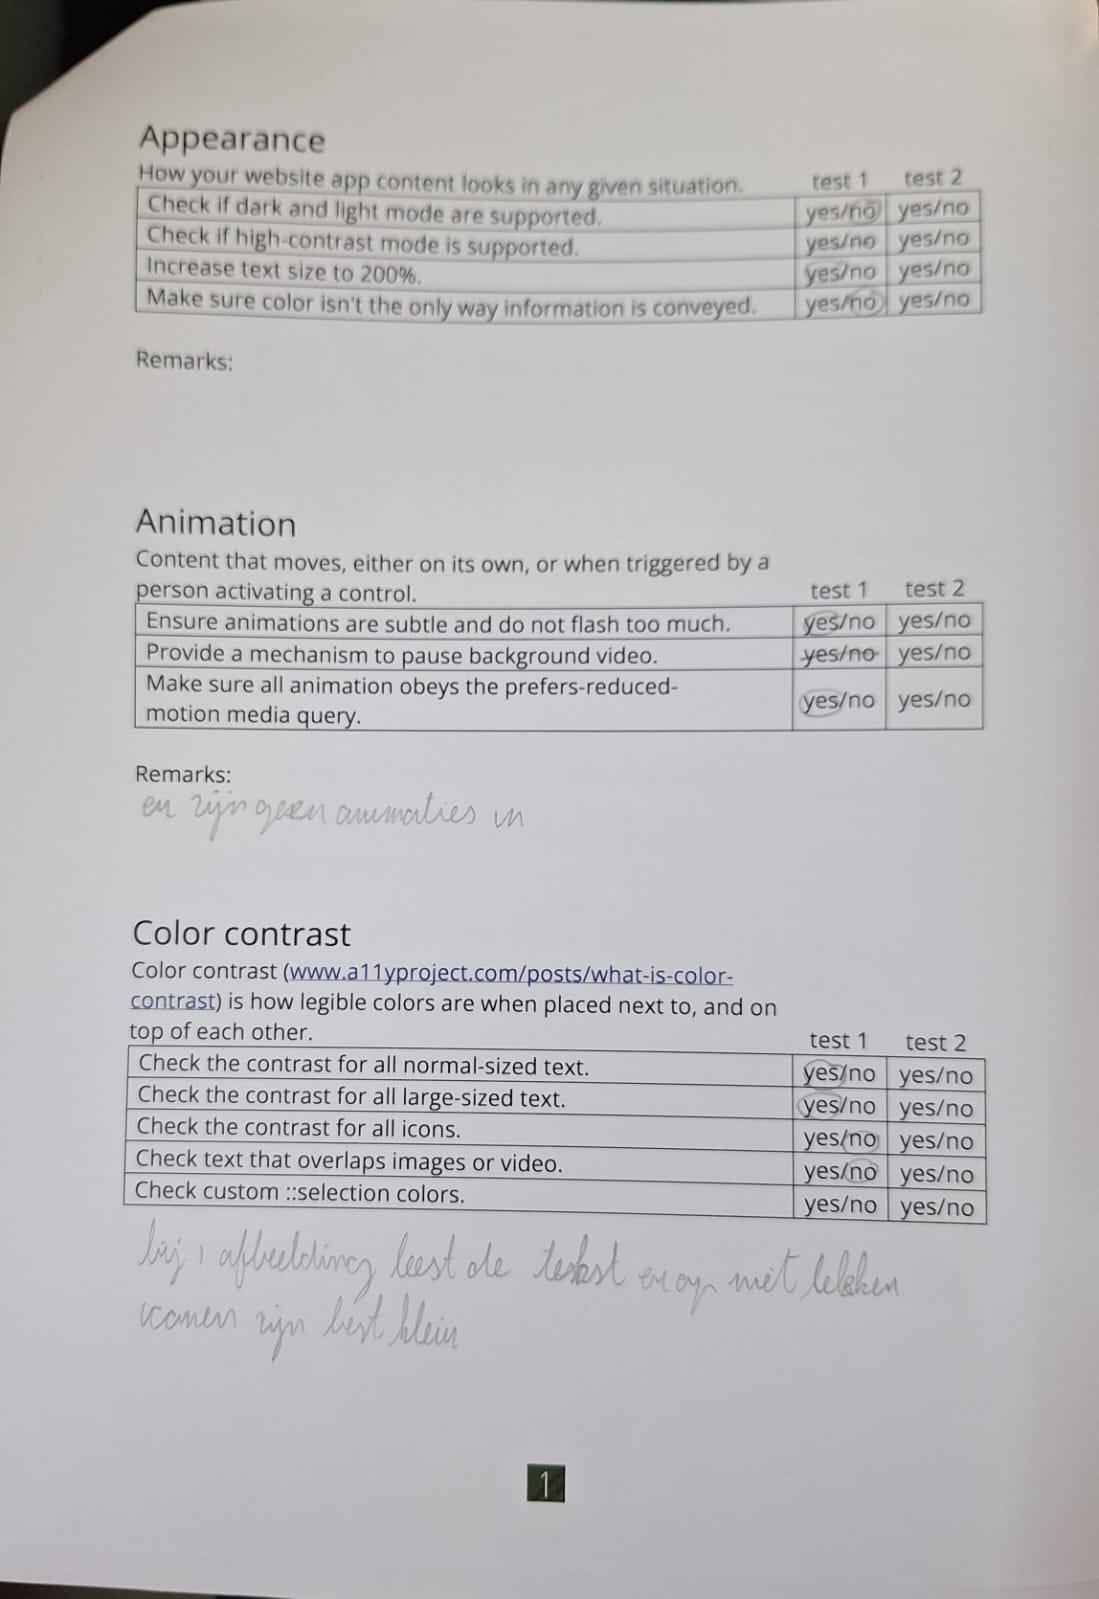 Appearance
How your website app content looks in any given situation. test 1 test 2
Check if dark and light mode are supported. yes/no yes/no
Check if high-contrast mode is supported. yes/no yes/no
Increase text size to 200%. yes/no yes/no
Make sure color isn't the only way information is conveyed. yes/no yes/no
Remarks:
Animation
Content that moves, either on its own, or when triggered by a
person activating a control. test 1 test 2
Ensure animations are subtle and do not flash too much. yes/no yes/no
Provide a mechanism to pause background video. yes/no yes/no
Make sure all animation obeys the prefers-reduced-
motion media query. yes/no yes/no
Remarks:
zijn geen animaties in
Color contrast
Color contrast (www.a11yproject.com/posts/what-is-color-
contrast) is how legible colors are when placed next to, and on
top of each other. test 1 test 2
Check the contrast for all normal-sized text. yes/no yes/no
Check the contrast for all large-sized text. yes/no yes/no
Check the contrast for all icons. yes/no yes/no
Check text that overlaps images or video. yes/no yes/no
Check custom ::selection colors. yes/no yes/no
bij 1 afbeelding leest de tekst erop niet lekker
iconen zijn best klein
1